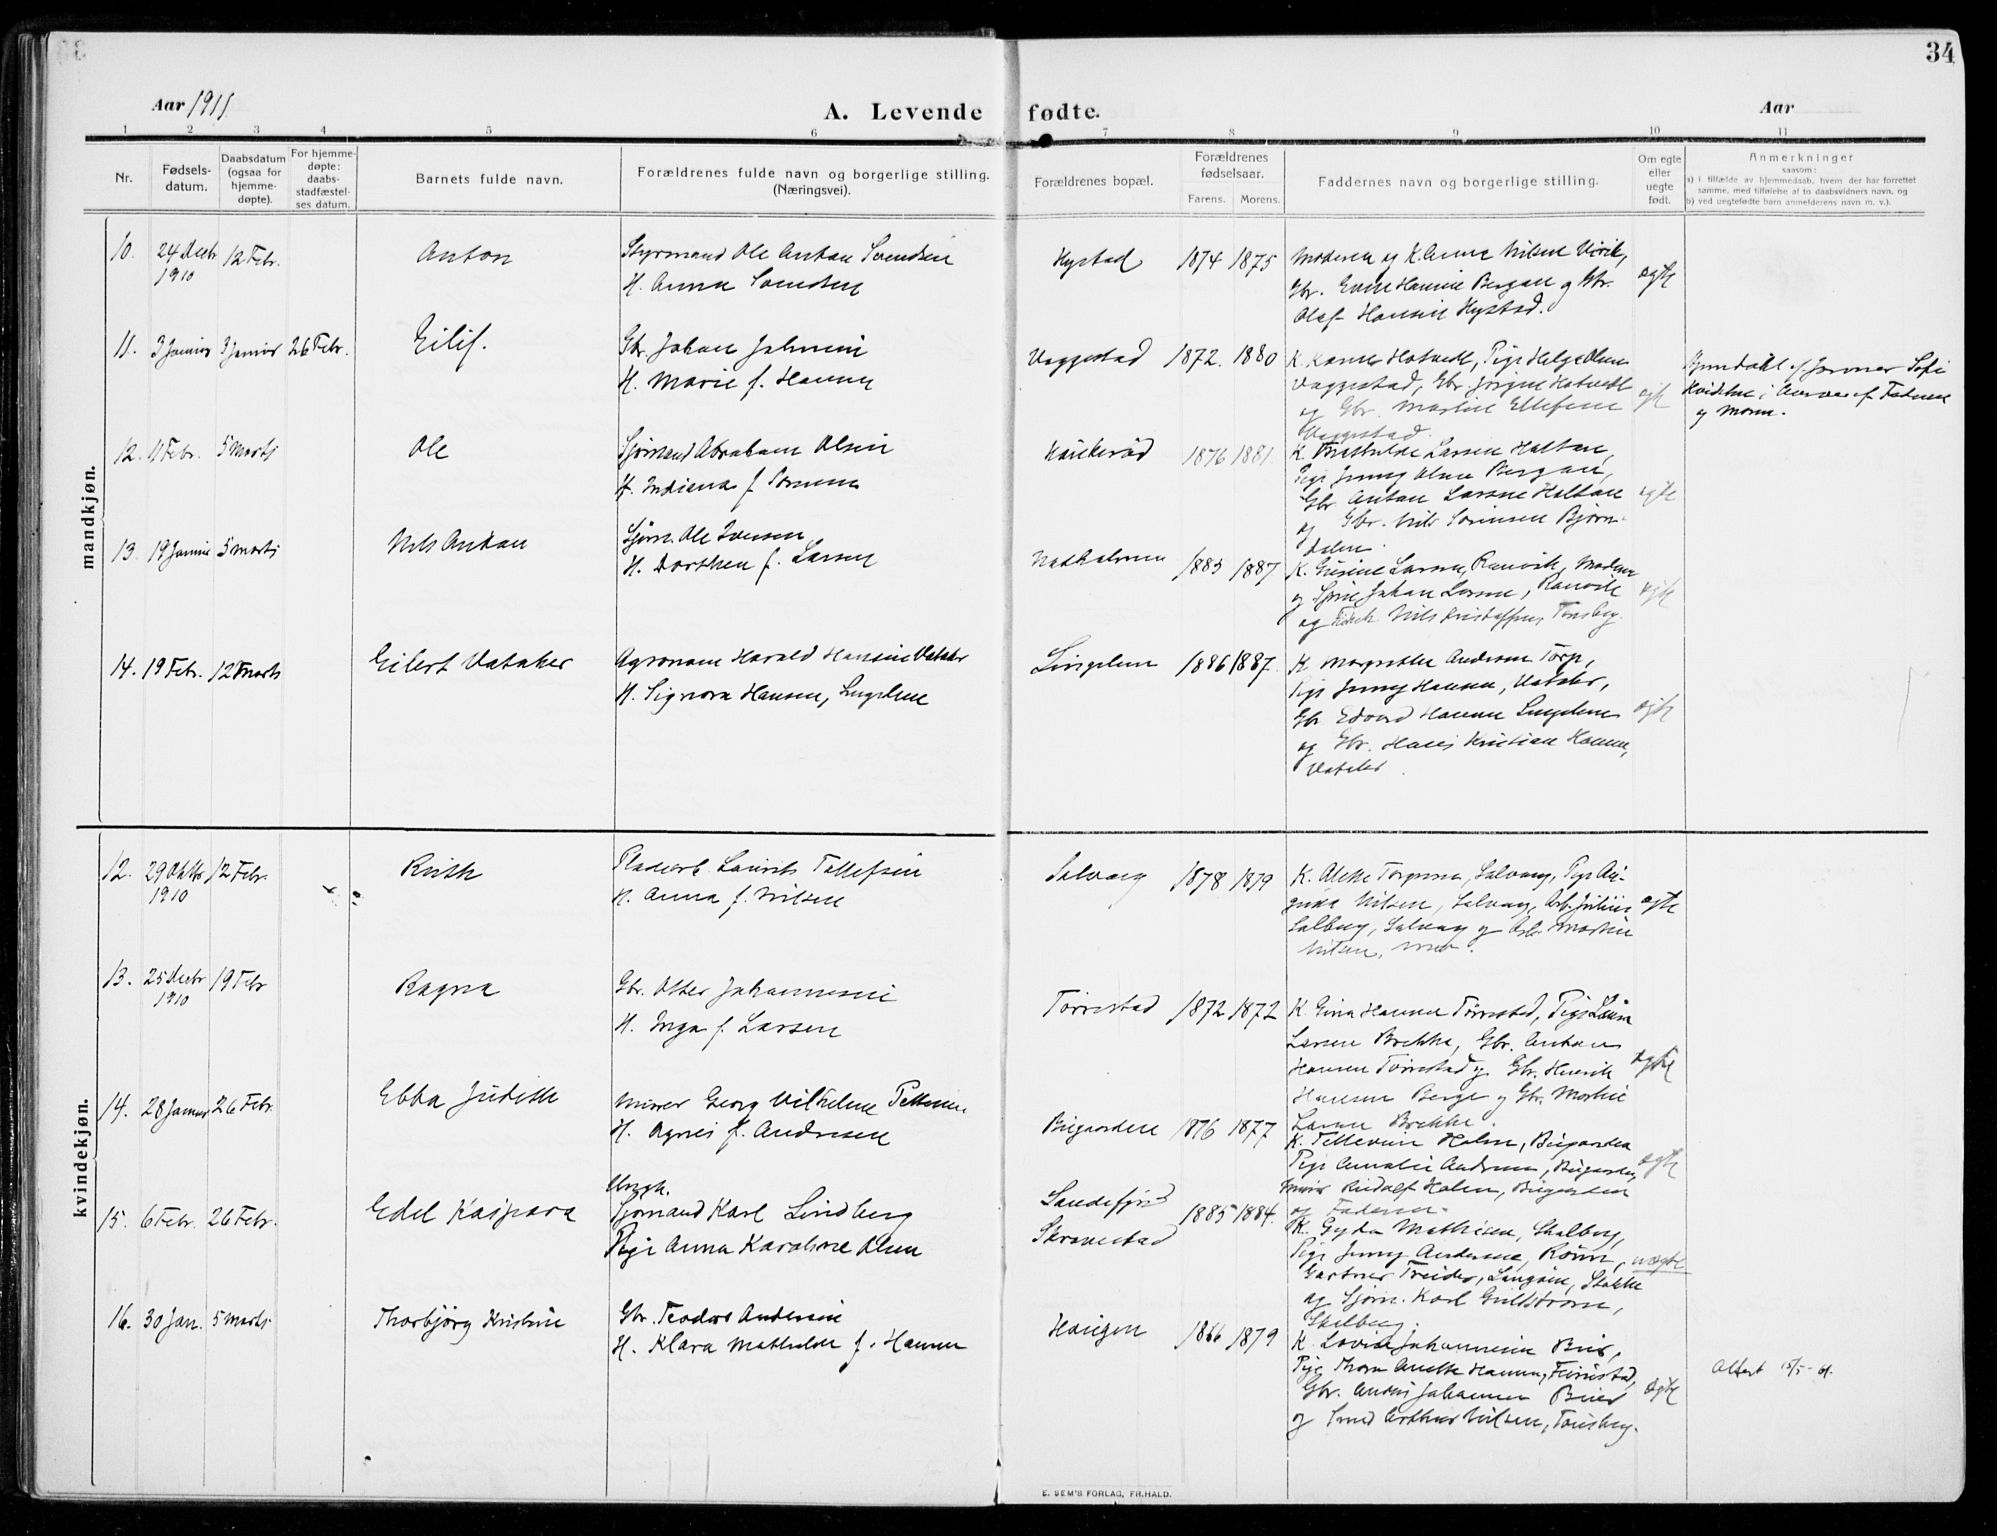 34
Aar 1911
A. Levende fødte.
Aar
1 2 3 4 5 6 7 8 9 10 11
Nr.
Fødsels-
datum.
Daabsdatum
(ogsaa for
hjemme-
døpte).
For hjemme-
døpte:
daabs-
stadfæstel-
ses datum.
Barnets fulde navn.
Forældrenes fulde navn og borgerlige stilling.
(Næringsvei).
Forældrenes bopæl.
Forældrenes
fødselsaar.
Farens. Morens.
Faddernes navn og borgerlige stilling.
Om egte
eller
uegte
født.
Anmerkninger
saasom:
a) i tilfælde av hjemmedaab, hvem der har forrettet
samme, med tilføielse af to daabsvidners navn, og
b) ved uegtefødte barn anmelderens navn m. v.).
mandkjøn.
10. 24 Decbr 1910 12 Febr. Anton
Styrmand Ole Anton Svendsen
H. Anna Svendsen
Hystad 1874 1875
Moderen og K. Anna Nilsen Virik,
Gbr. Hansine Bergan og Gbr.
Olaf Hansen Hystad.
ægte
11. 3 Januar 3 Januar 26 Febr. Eilif.
Gbr. Johan Johnsen
H. Marie f. Hansen
Vaggestad 1872. 1880
K. Hotvedt, Pige Helga Olsen
Vaggestad, Gbr. Jørgen Hotvedt
og Gbr. Martin Ellefsen
Vaggestad.
ægte
af Fadren
og Moren.
12. 11 Febr. 5 Marts Ole
Sjømand Abraham Olsen
H. Indiana f.
1876 1881.
K. Mathilde Larsen Haltan,
Pige Jenny Olsen Bergan,
Gbr. Anton Larsen Haltan
og Gbr. Nils Sørensen Bjørn-
dalen.
ægte
13. 19 Januar 5 Marts Nils Anton
Sjøm. Ole Iversen
H. Dorthea f. Larsen
Nathalmen 1885 1887
K. Gusine Larsen, Ranvik, Moderen
og Sjøm. Johan Larsen, Ranvik
og Nils Kristoffersen, Tønsberg.
ægte
14. 19 Febr. 12 Marts Eilert Vataker
Agronom Harald Hansen Vataker
H. Signora Hansen, Lingelem
Lingelem 1886 1887.
K. Margrethe Andersen Torp,
Pige Jenny Hansen, Vataker,
Gbr Edvard Hansen Lingelem
og Gbr. Hans Kristian Hansen,
Vataker.
ægte
kvindekjøn.
12. 29 Oktbr 1910 12 Febr. Ruth
Pladearb. Laurits Tallefsen
H. Anna f. Nilsen
Salvang 1878 1879
K. Alette Salvang, Pige Au-
gusta Nilsen, Salvang, Arb. Julius
Salberg, Salvang og Arb. Martin
Nilsen,
ægte
13. 25 Decbr 1910 19 Febr Ragna
Gbr. Otter Johannesen
H. Inga f. Larsen
Tørrestad 1872 1872
K. Gina Hansen Tørrestad, Pige Laura
Larsen Brekke, Gbr. Anton
Hansen Tørrestad og Gbr. Henrik
Hansen Berge og Gbr. Martin
Larsen Brekke.
ægte
14. 28 Januar 26 Febr. Ebba Judith
Murer Georg Vilhelm Pettersen
H. Agnes f. Andresen
Bugaarden 1876 1877
K. Holm, Bugaarden
Pige Amalie Andresen, Bugaarden,
Murer Rudolf Holm, Bugaarden
og Faderen.
ægte
15. 6 Febr. 26 Febr. Edel Kaspara
Ungk.
Sjømand Karl Lindberg
Pige Anna Karoline Olsen
Sandefjord
Skravestad
1885 1884.
K. Gyda Mathisen, Skalberg,
Pige Jenny Andersen,
Gartner Stokke
og Sjøm. Karl Gullstrøm,
Skalberg.
uægte
16. 30 Jan. 5 Marts Thorbjørg Kristine
Gbr. Teodor Andersen
H. Klara Mathilde f. Hansen
Haugen 1866 1879
K. Lovise Johannesen Buer,
Pige Thora Anette Hansen,
Gbr. Anders Johannesen Buer
og Smed Arthur Nilsen, Tønsberg.
ægte
Attest 15/5-61.
E. SEM'S FORLAG, FR.HALD.